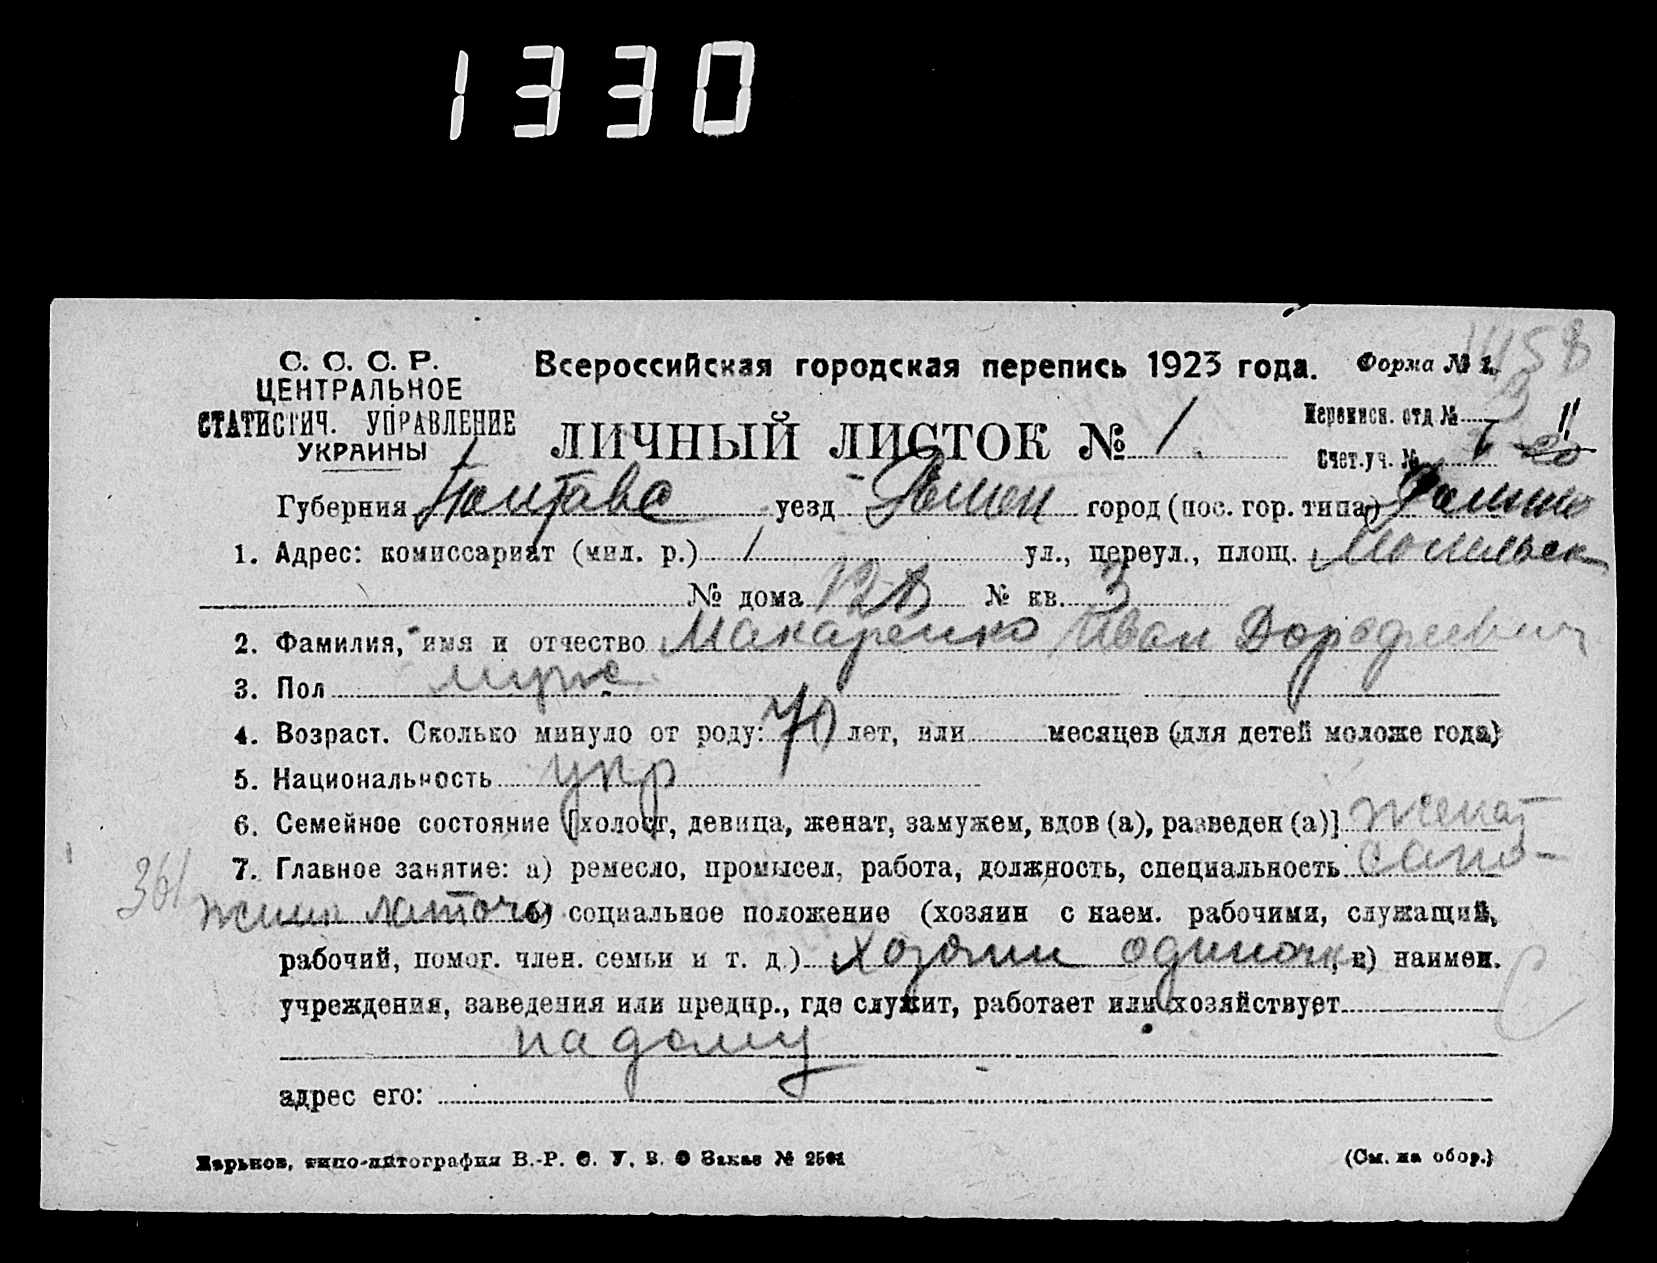 1330
С. С. С. Р.
ЦЕНТРАЛЬНОЕ
СТАТИСТИЧ. УПРАВЛЕНИЕ
УКРАИНЫ
Всероссийская городская перепись 1923 года.
Форма № 1.
1458
ЛИЧНЫЙ ЛИСТОК № 1.
Переписн. отд №
Счет.уч. №
Губерния Полтава уезд Ромен город (пос. гор. типа)
1. Адрес: комиссариат (мил. р.) 1 ул., переул., площ.
№ дома 12 № кв. 3
2. Фамилия, имя и отчество Макаренко Иван Дорофеевич
3. Пол муж
4. Возраст. Сколько минуло от роду: 70 лет, или месяцев (для детей моложе года)
5. Национальность укр
6. Семейное состояние [холост, девица, женат, замужем, вдов (а), разведен (а)] женат
7. Главное занятие: а) ремесло, промысел, работа, должность, специальность сапо-
361
б) социальное положение (хозяин с наем. рабочими, служащий,
рабочий, помог. член. семьи и т. д.) хозяин одиночк, в) наимен.
учреждения, заведения или предпр., где служит, работает или хозяйствует
на дому
адрес его:
Харьков, типо-литография В.-Р. С. У. В. О Заказ №
(См. на обор.)